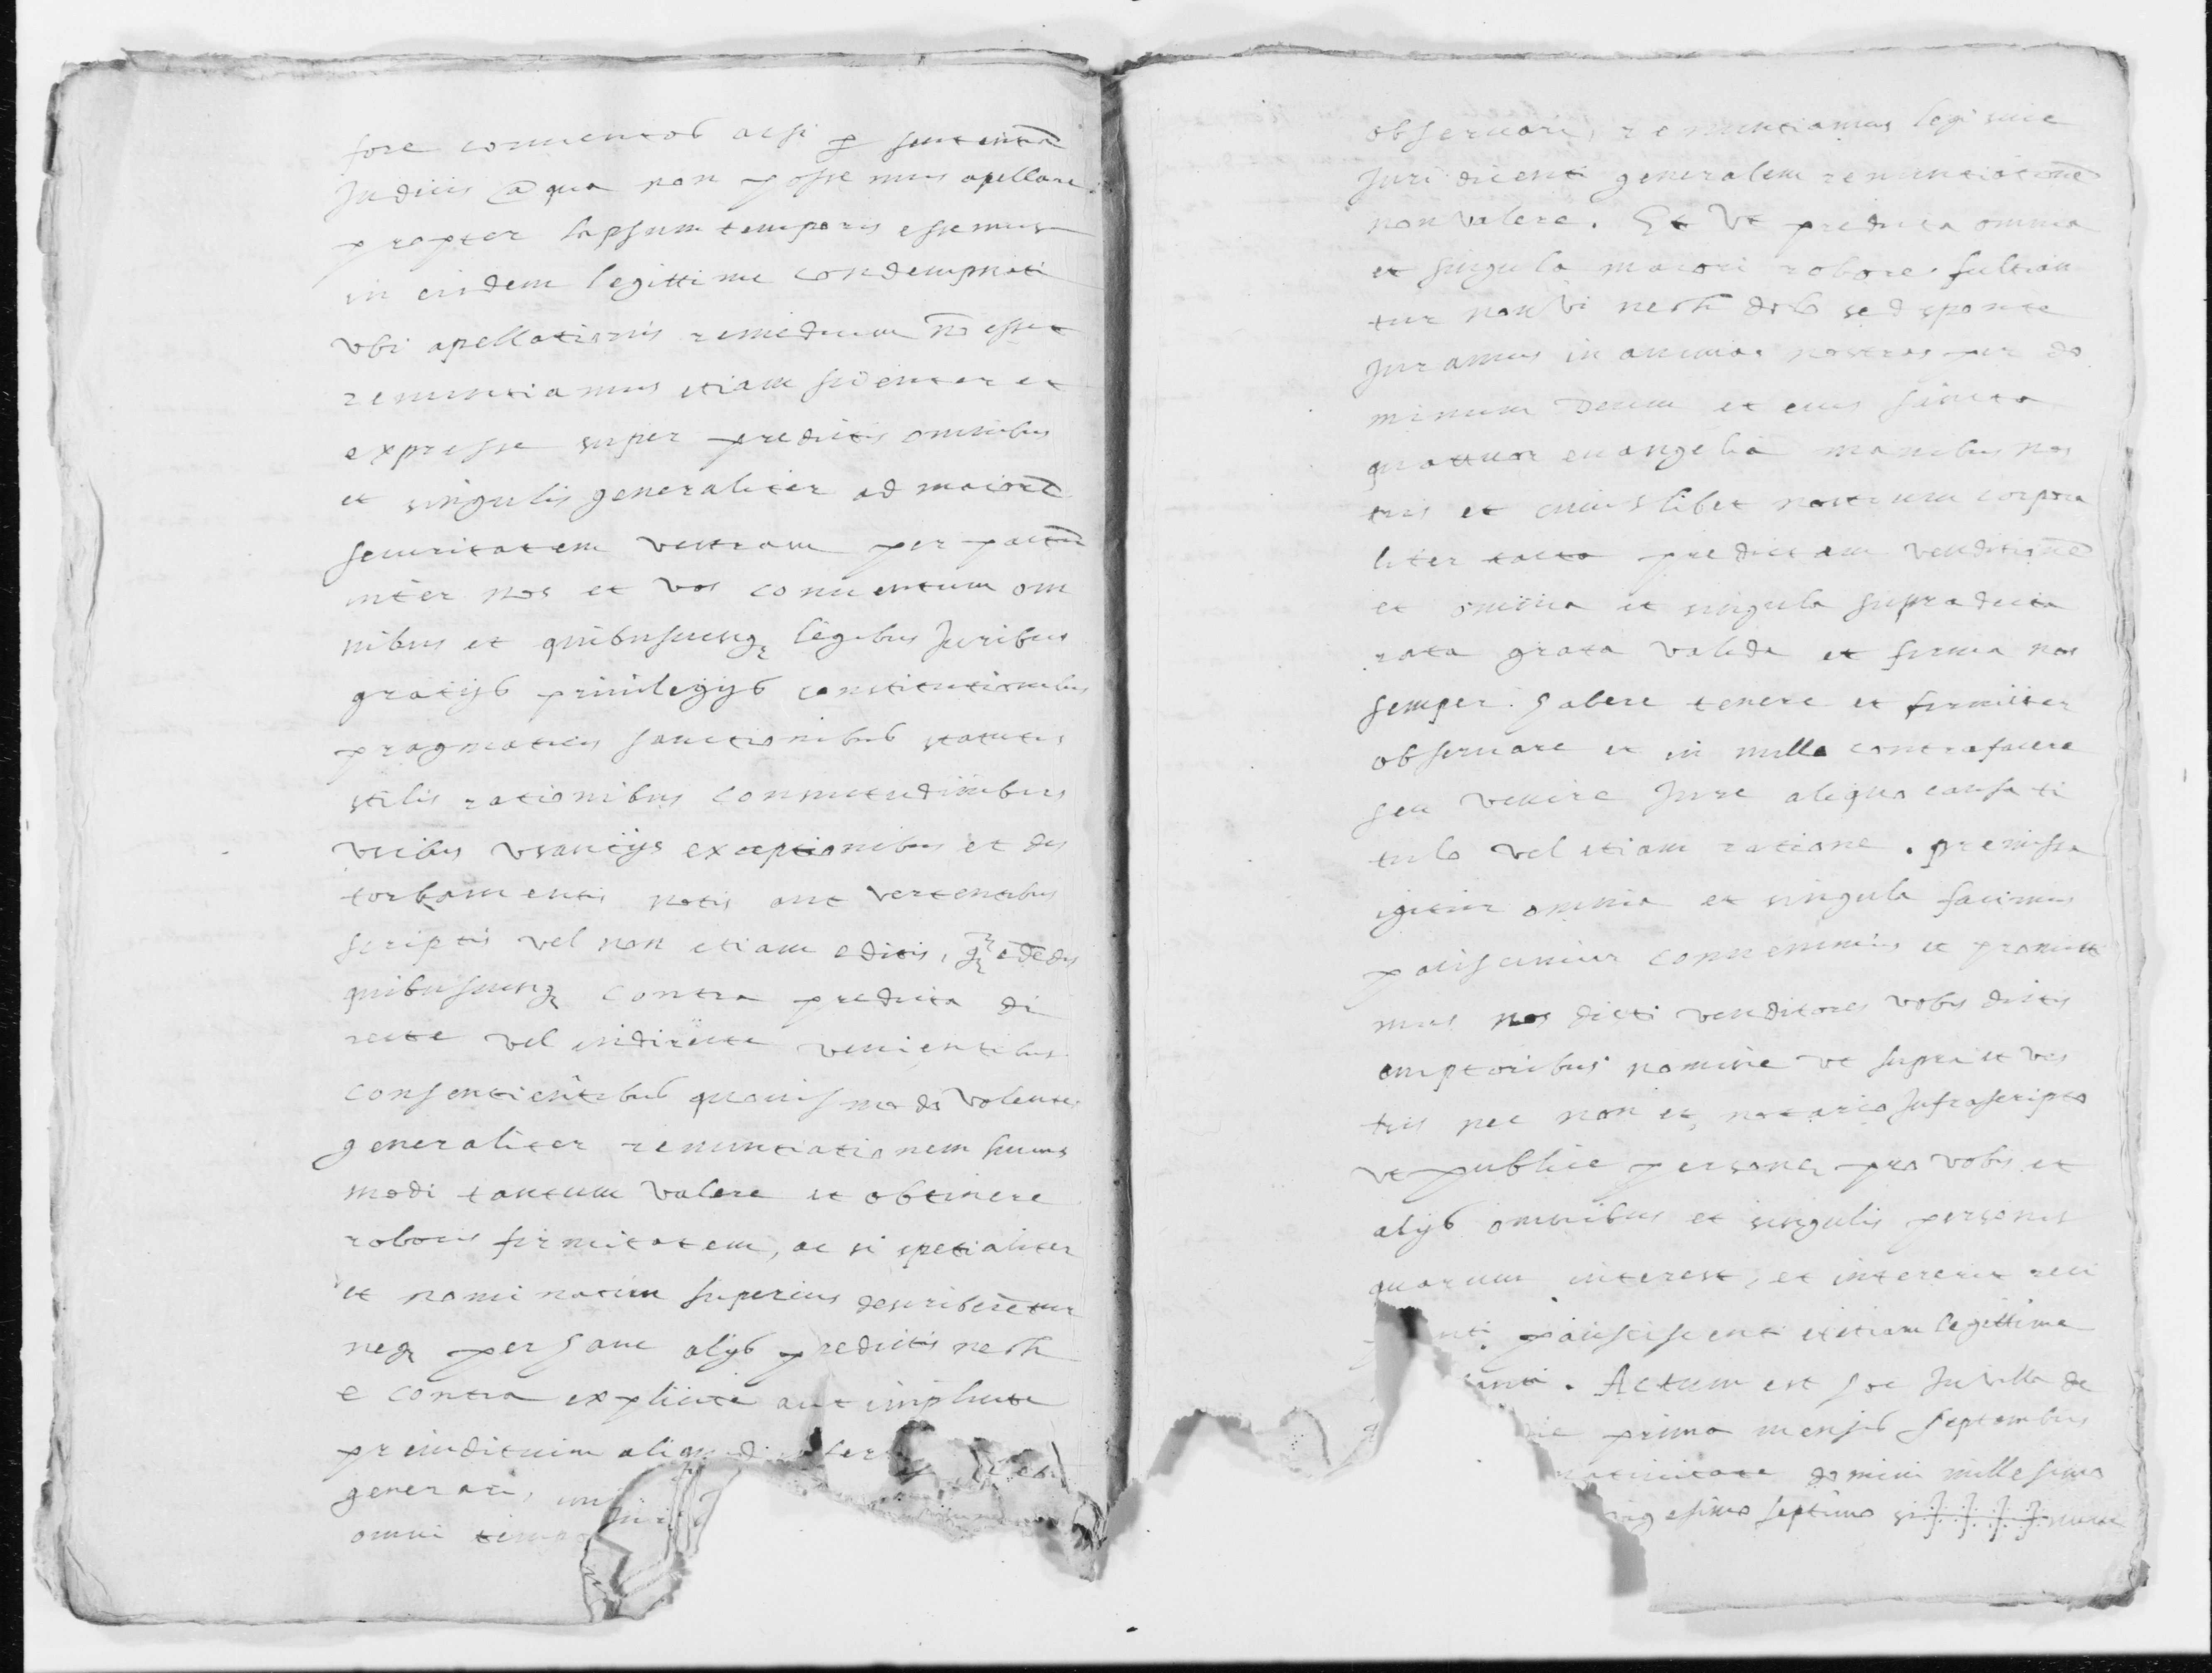 fore conuentos acsi p sententiā
Judicis a qua non possemus apellare
propter lapsum temporis essemus
in eisdem legittime condempnati
vbi apellationis remedium nō esset
renuntiamus etiam scienter et
expresse super predictis omnibus
et singulis generaliter ad maiorē
securitatem vestram per pactū
inter nos et vos conuentum om
nibus et quibuscunq legibus Juribus
gratijs priuilegijs constitutionibus
pragmaticis sanctionibus statutis
stilis rationibus consuetudinibus
vsibus vsancijs exceptionibus et des
torbamentis notis aut vertentibus
scriptis vel non etiam editis,
quibuscunq contra predicta di
recte vel indirecte venientibus
consentientibus quouis modo volentes
generaliter renuntiationem huius
modi tantum valere et obtinere
roboris firmitatem, ac si spetialiter
et nominatim superius describerētur
neq per hanc alijs predictis
e contra explicite aut implicite
preiuditium
generari,
omni
obseruari, renuntiamus legi siue
Juri dicenti generalem renuntiationē
non valere. Et vt predicta omnia
et singula maiori robore fultian
tur non vi dolo sed sponte
Juramus in animas nostras per do
minum Deum et eius sancta
quattuor euangelia manibus nos
tris et cuiuslibet nostrum corpora
liter tacta predictam venditionē
et omnia et singula supradicta
rata grata valida et firma nos
semper habere tenere et firmiter
obseruare et in nullo contrafacere
seu venire Jure aliquo causa ti
tulo vel etiam ratione. premissa
igitur omnia et singula facimus
paciscimur conuenimus et promitti
mus nos dicti venditores vobis dictis
emptoribus nomine vt supra et ves
tris nec non et notario Jnfrascripto
vt publice persone pro vobis et
alijs omnibus et singulis personis
quarum interest, et intererit reci
paciscenti et etiam legittime
. Actum est hoc Jn villa de
prima mensis septembris
natiuitate domini millesimo
septimo